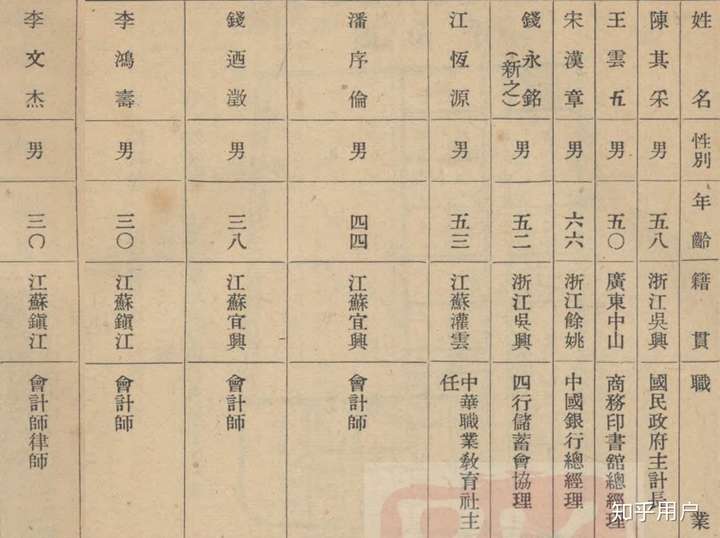 姓名 性別 年齡 籍貫 職業
陳其采 男 五八 浙江吳興 國民政府主計長
王雲五 男 五〇 廣東中山 商務印書館總經理
宋漢章 男 六六 浙江餘姚 中國銀行總經理
錢永銘(新之) 男 五二 浙江吳興 四行儲蓄會協理
江恆源 男 五三 江蘇灌雲 中華職業教育社主任
潘序倫 男 四四 江蘇宜興 會計師
錢迺澂 男 三八 江蘇宜興 會計師
李鴻壽 男 三〇 江蘇鎭江 會計師
李文杰 男 三〇 江蘇鎭江 會計師律師
知乎用户